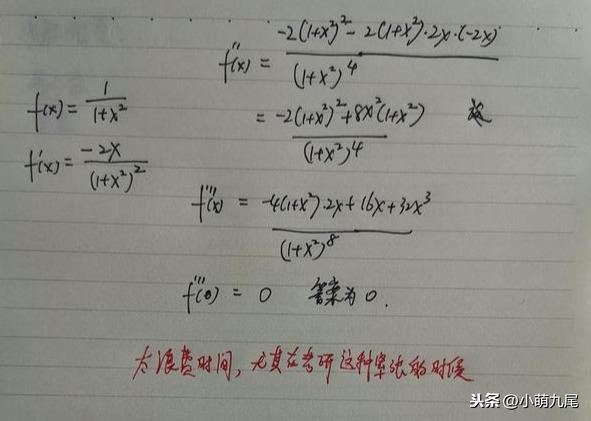 f(x) = 1/(1+x²)
f'(x) = -2x/(1+x²)²
f''(x) = (-2(1+x²)² - 2(1+x²)·2x·(-2x))/(1+x²)⁴
= (-2(1+x²)² + 8x²(1+x²))/(1+x²)⁴
f'''(x) = (-4(1+x²)·2x + 16x + 32x³)/(1+x²)⁸
f'''(0) = 0 答案为0.
太浪费时间，尤其在考研这种紧张的时候
头条@小萌九尾